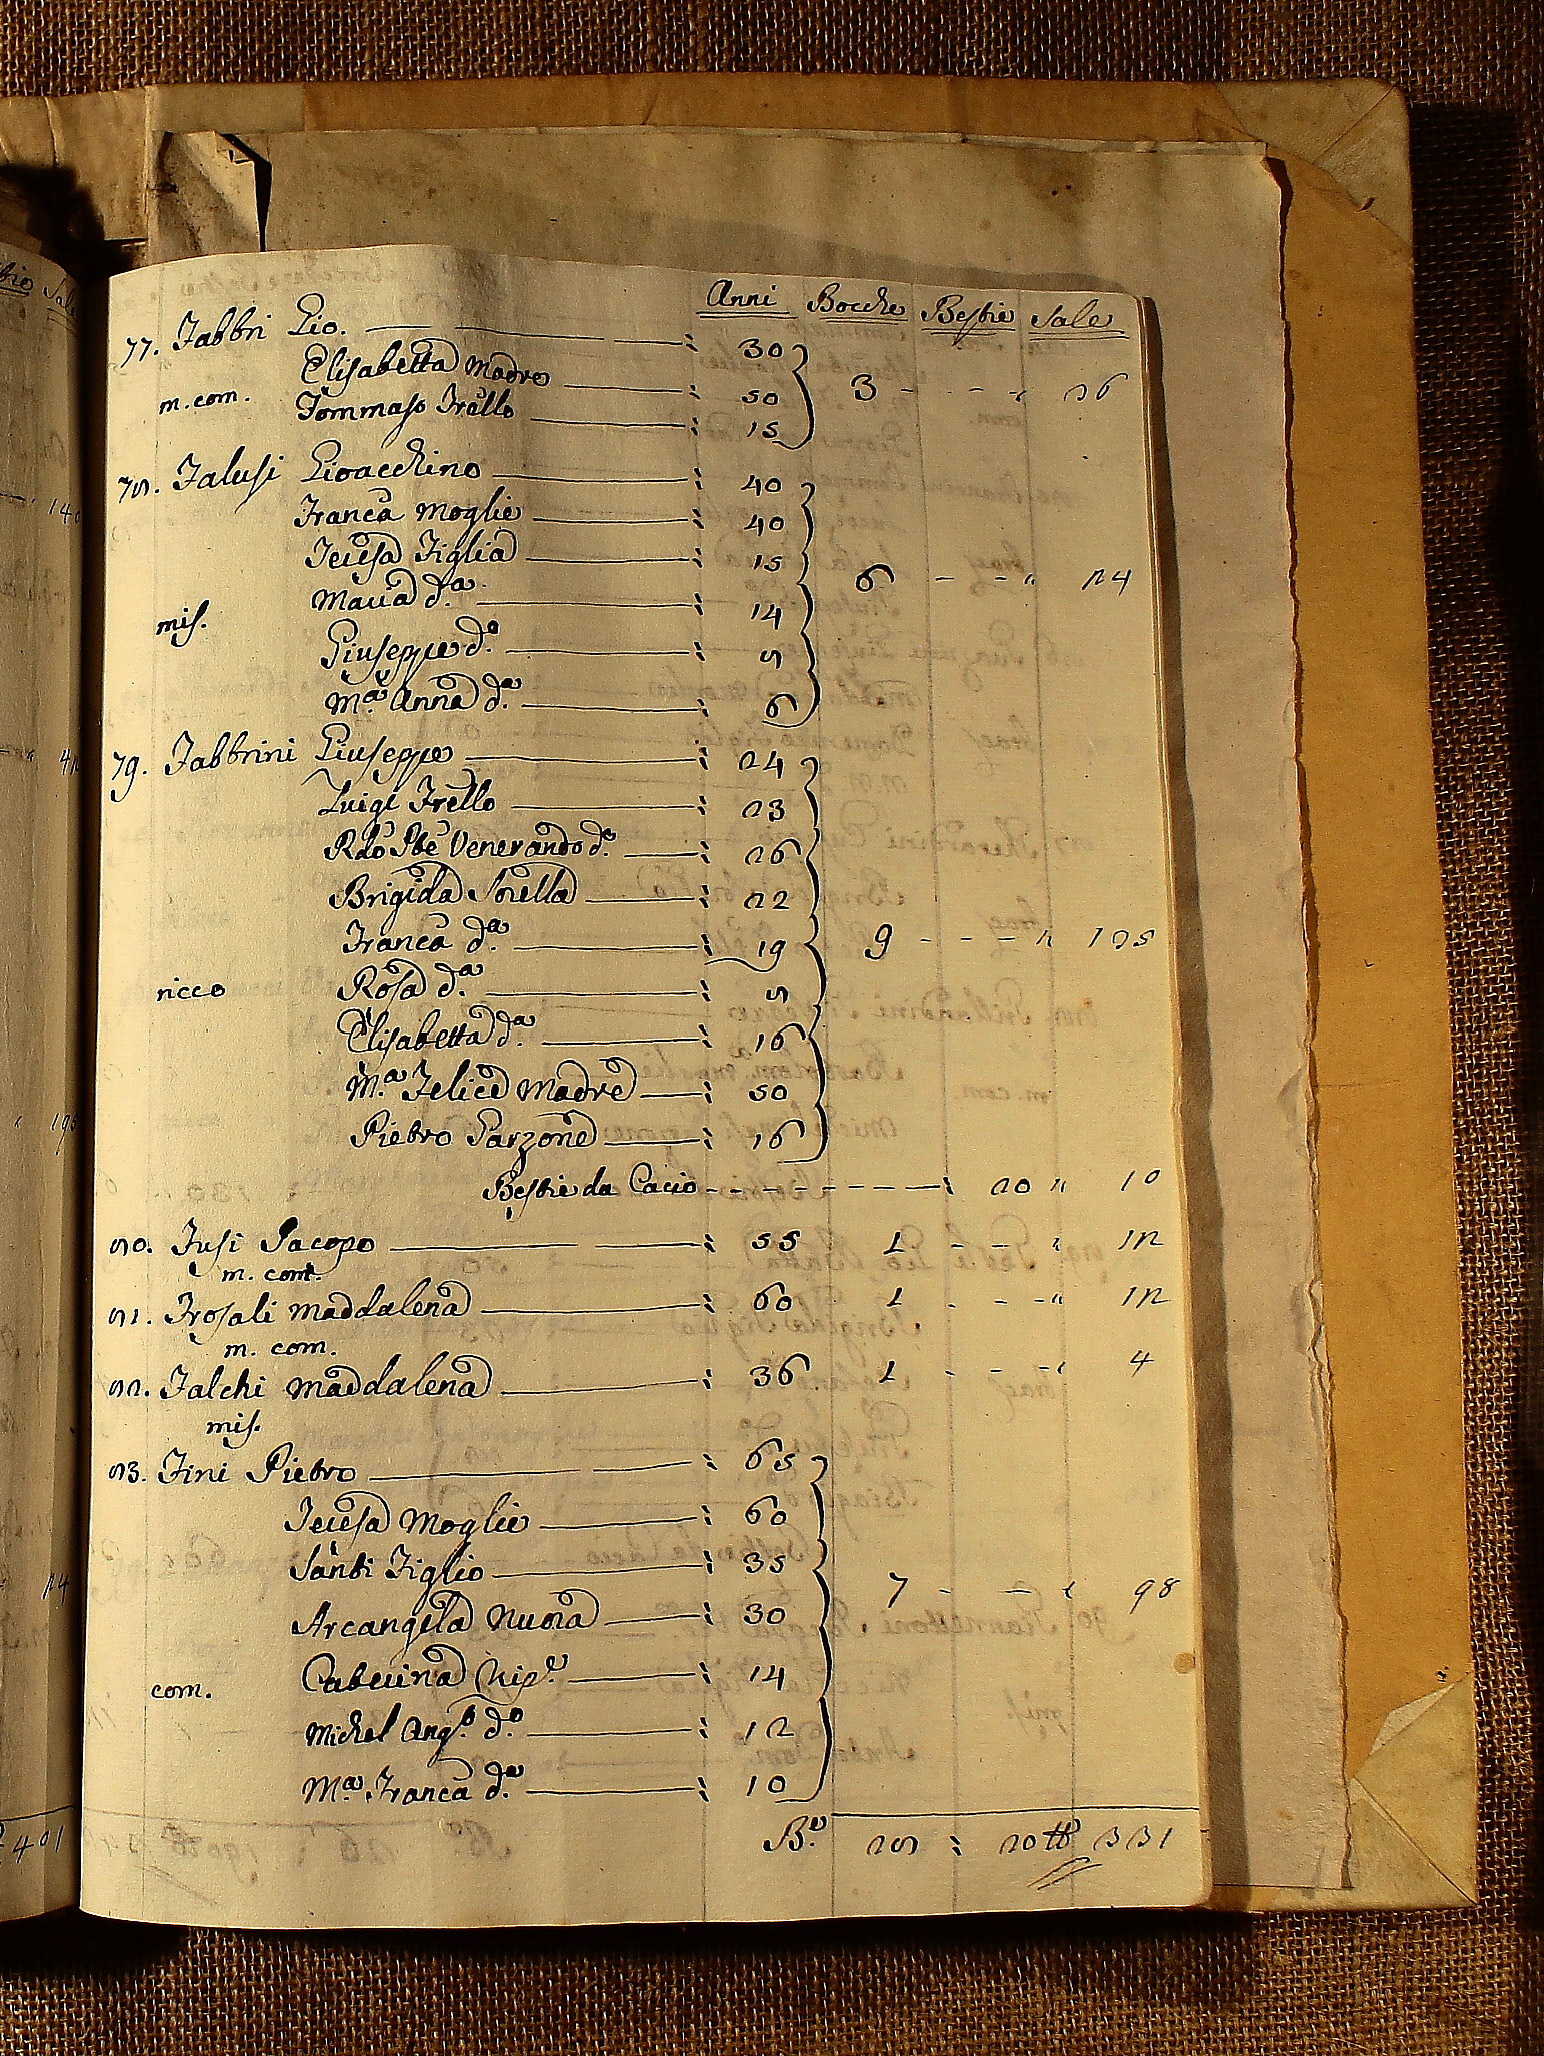 Anni Bocche Bestie Sale
77. Fabbri Gio. : 30
Elisabetta Madre : 50 3 - - - " 36
m. com. Tommaso Frãllo : 15
78. Falusi Gioacchino : 40
Franca Moglie : 40
Teresa Figlia : 15
Maria d.a : 14 6 - - " 24
mis. Giuseppe d.o : 8
M.a Anna d.a : 6
79. Fabbrini Giuseppe : 24
Luigi Frello : 23
Rdo Pbe Venerando d.o : 26
Brigida Sorella : 22
Franca d.a : 19 9 - - - " 135
ricco Rosa d.a : 8
Elisabetta d.a : 16
M.a Felice Madre : 50
Pietro Garzone : 16
Bestie da Cacio - - - - - - - : 20 " 10
80. Fusi Jacopo : 55 1 - - " 12
m. com.
81. Frosali Maddalena : 60 1 - - - " 12
m. com.
82. Falchi Maddalena : 36 1 - - - " 4
mis.
83. Fini Pietro : 65
Teresa Moglie : 60
Santi Figlio : 35 7 - - " 98
Arcangela Nuora : 30
com. Caterina Nip.e : 14
Michel Ang.o d.o : 12
M.a Franca d.a : 10
28 : 20 ℔ 331